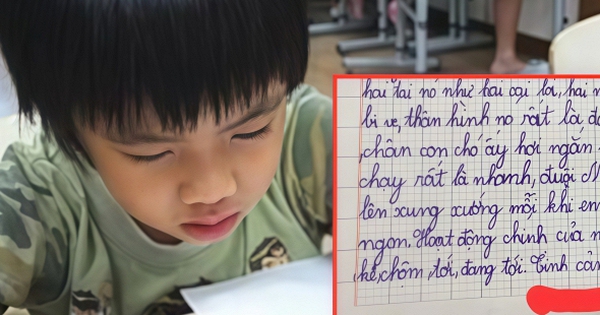 hai tai nó như hai cại lá, hai
bi ve, thân hình nó rất là
, chân con chó ấy hơi ngắn
chạy rất là nhanh, đuôi
lên xung xướng mỗi khi em
ngon. Hoạt động chính của
kể, chồm, tới, đang tới. Tình cảm